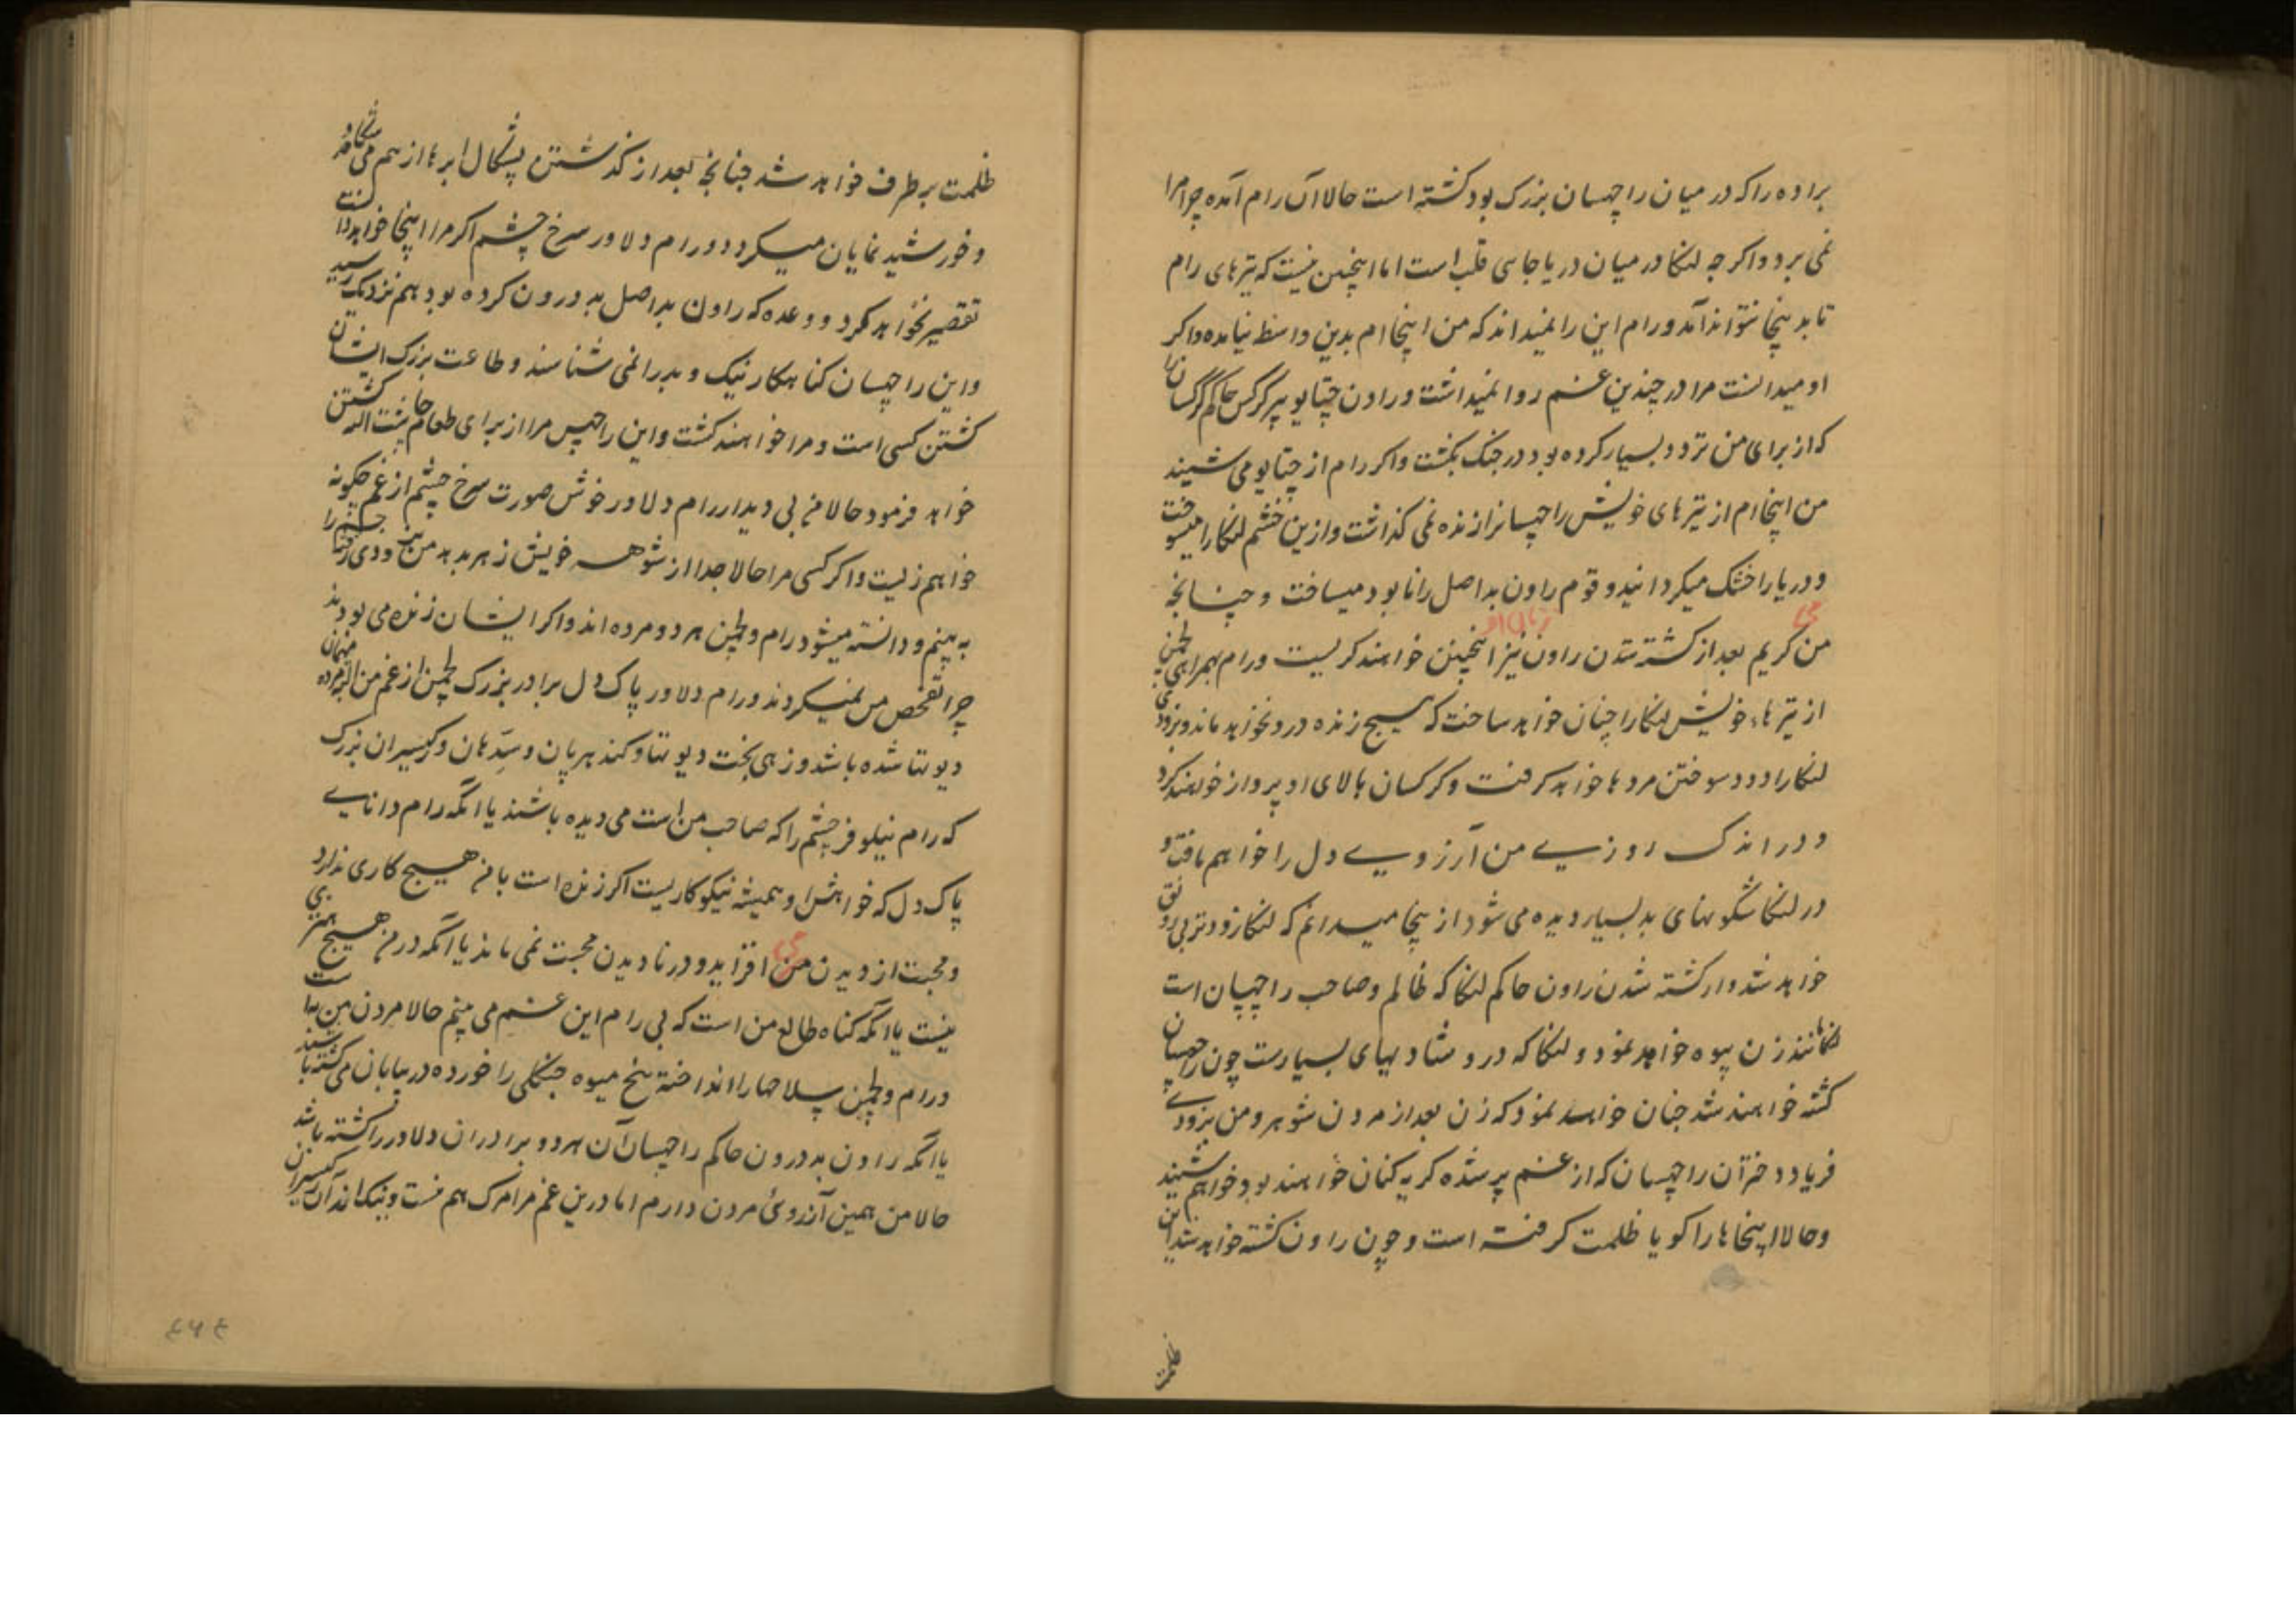 براده را که در میان راچهسان بزرگ بود کشته است حالا آن رام آمده چرا مرا
نمی برد و اکرچه لنکا در میان دریا جای قلب است اما اینچنین نیست که تیرهای رام
تا بدینجا نتواند آمد و رام این را نمیداند که من اینجاام بدین واسطه نیامده و اکر
او میدانست مرا در چندین غم روا نمیداشت و راون چتایو پیر کرکس حاکم کرکسان را
که از برای من تردد بسیار کرده بود در جنک بکشت و اکر رام از چتایو می شنید
من اینجاام از تیرهای خویش راچهسانرا زنده نمی کذاشت و ازین خشم لنکا را میسوخت
و دریا را خشک میکردانید و قوم راون بداصل را نابود میساخت و چنانچه
من کریم بعد از کشته شدن راون زنان او نیز اینچنین خواهند کریست و رام بهمراهی لچمن
از تیرهاء خویش لنکا را چنان خواهد ساخت که هیچ زنده درو نخواهد ماند و بزودی
لنکا را دود سوختن مردها خواهد کرفت و کرکسان بالای او پرواز خواهند کرد
و در اندک روزی من آرزوی دل را خواهم یافت و
در لنکا شکونهای بد بسیار دیده می شود ازینجا میدانم که لنکا زودتر بی رونق
خواهد شد و از کشته شدن راون حاکم لنکا که ظالم و صاحب راچهسان است
لنکا مانند زن بیوه خواهد نمود و لنکا که درو شادیهای بسیارست چون راچهسان
کشته خواهند شد چنان خواهد نمود که زن بعد از مردن شوهر و من بزودی
فریاد دختران راچهسان که از غم پر شده کریه کنان خواهند بود خواهم شنید
و حالا اینجاها را کویا ظلمت کرفته است و چون راون کشته خواهد شد این
ظلمت
ظلمت برطرف خواهد شد چنانچه بعد از کذشتن پشکال ابرها از هم می شکافد
و خورشید نمایان میکردد و رام دلاور سرخ چشم اکر مرا اینجا خواهد دانست
تقصیر نخواهد کرد و وعده که راون بداصل بدورون کرده بود هم نزدیک رسید
و این راچهسان کناهکار نیک و بد را نمی شناسند و طاعت بزرک ایشان
کشتن کسی است و مرا خواهند کشت و این راچهس مرا از برای طعام چاشت البته کشتن
خواهد فرمود حالا من بی دیدار رام دلاور خوش صورت سرخ چشم از غم چکونه
خواهم زیست و اکر کسی مرا حالا جدا از شوهر خویش زهر بدهد من بزودی
به بینم و دانسته میشود رام و لچمن هر دو مرده اند و اکر ایشان زنده می بودند
چرا تفحص من نمیکردند و رام دلاور پاک دل برادر بزرک لچمن از غم من البته مرده
دیوتتا شده باشد و زهی بخت دیوتتا و کندهربان و سدهان و رکیسران بزرک
که رام نیلوفر چشم را که صاحب من است می دیده باشند یا آنکه رام دانای
پاک دل که خواهش او همیشه نیکوکاریست اکر زنده است با من هیچ کاری ندارد
و محبت از دیدن می افزاید و در نادیدن محبت نمی ماند یا آنکه در من هیچ هنری
نیست یا آنکه کناه طالع من است که بی رام این غم می بینم حالا مردن من به است
و رام و لچمن سلاحها را انداخته بیخ میوه جنکلی را خورده در بیابان می کشته باشند
یا آنکه راون بددرون حاکم راچهسان آن هر دو برادران دلاور را کشته باشد
حالا من همین آرزوی مردن دارم اما درین غم مرا مرک هم نیست و نیک اند آن رکیسران
٤٧٤